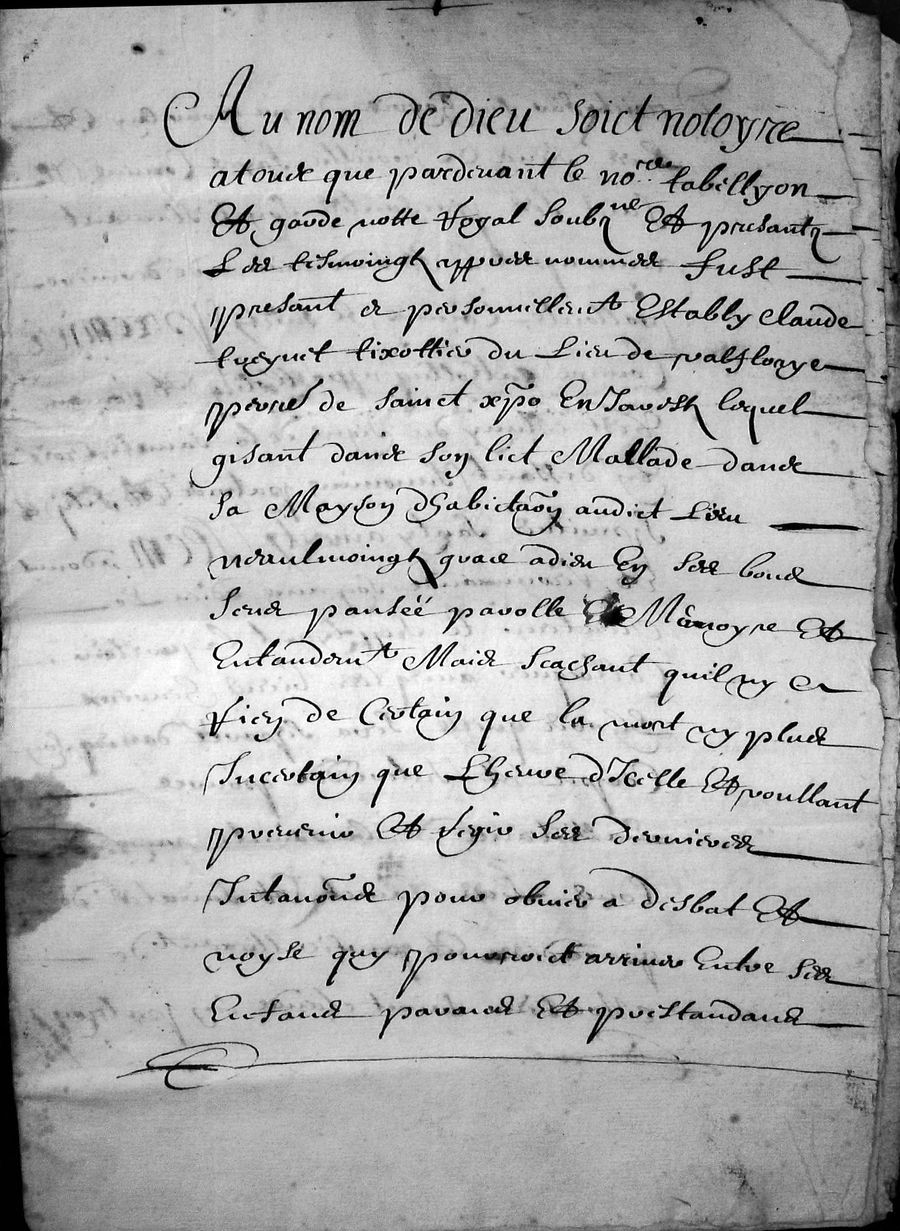 Au nom de dieu soict notoyre
a tous que pardevant le no.re tabellyon
Et garde notte Royal soubz.né Et presantz
Les tesmoingtz appres nommes fust
presant et personnellem.t Estably claude
tixottier du Lieu de valflorye
perrel de sainct xpo En Jarestz lequel
gisant dans son lict Mallade dans
sa Mayson d'habictaõn audict Lieu
neaulmoingtz grace a dieu En ses bons
sens pansée parolle Et Mémoyre Et
Entandem.t Mais scachant quil ny a
Rien de Certain que la mort ny plus
Incertain que Lheure d'Icelle Et voullant
prevenir Et Regir ses dernieres
Intanõns pour obvier a desbat Et
noyse quy pourroict arriver Entre ses
Enfans parans Et prestandans